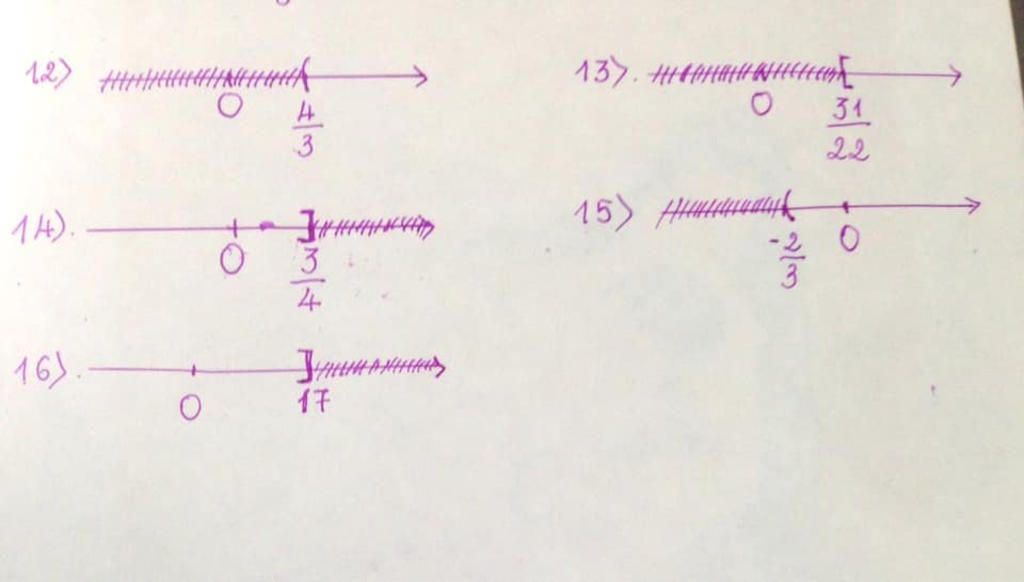 12) 0 4/3
13) 0 31/22
14) 0 3/4
15) -2/3 0
16) 0 17